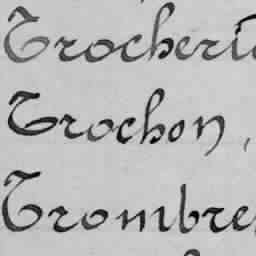 Trocheri
Trochon,
Trombre